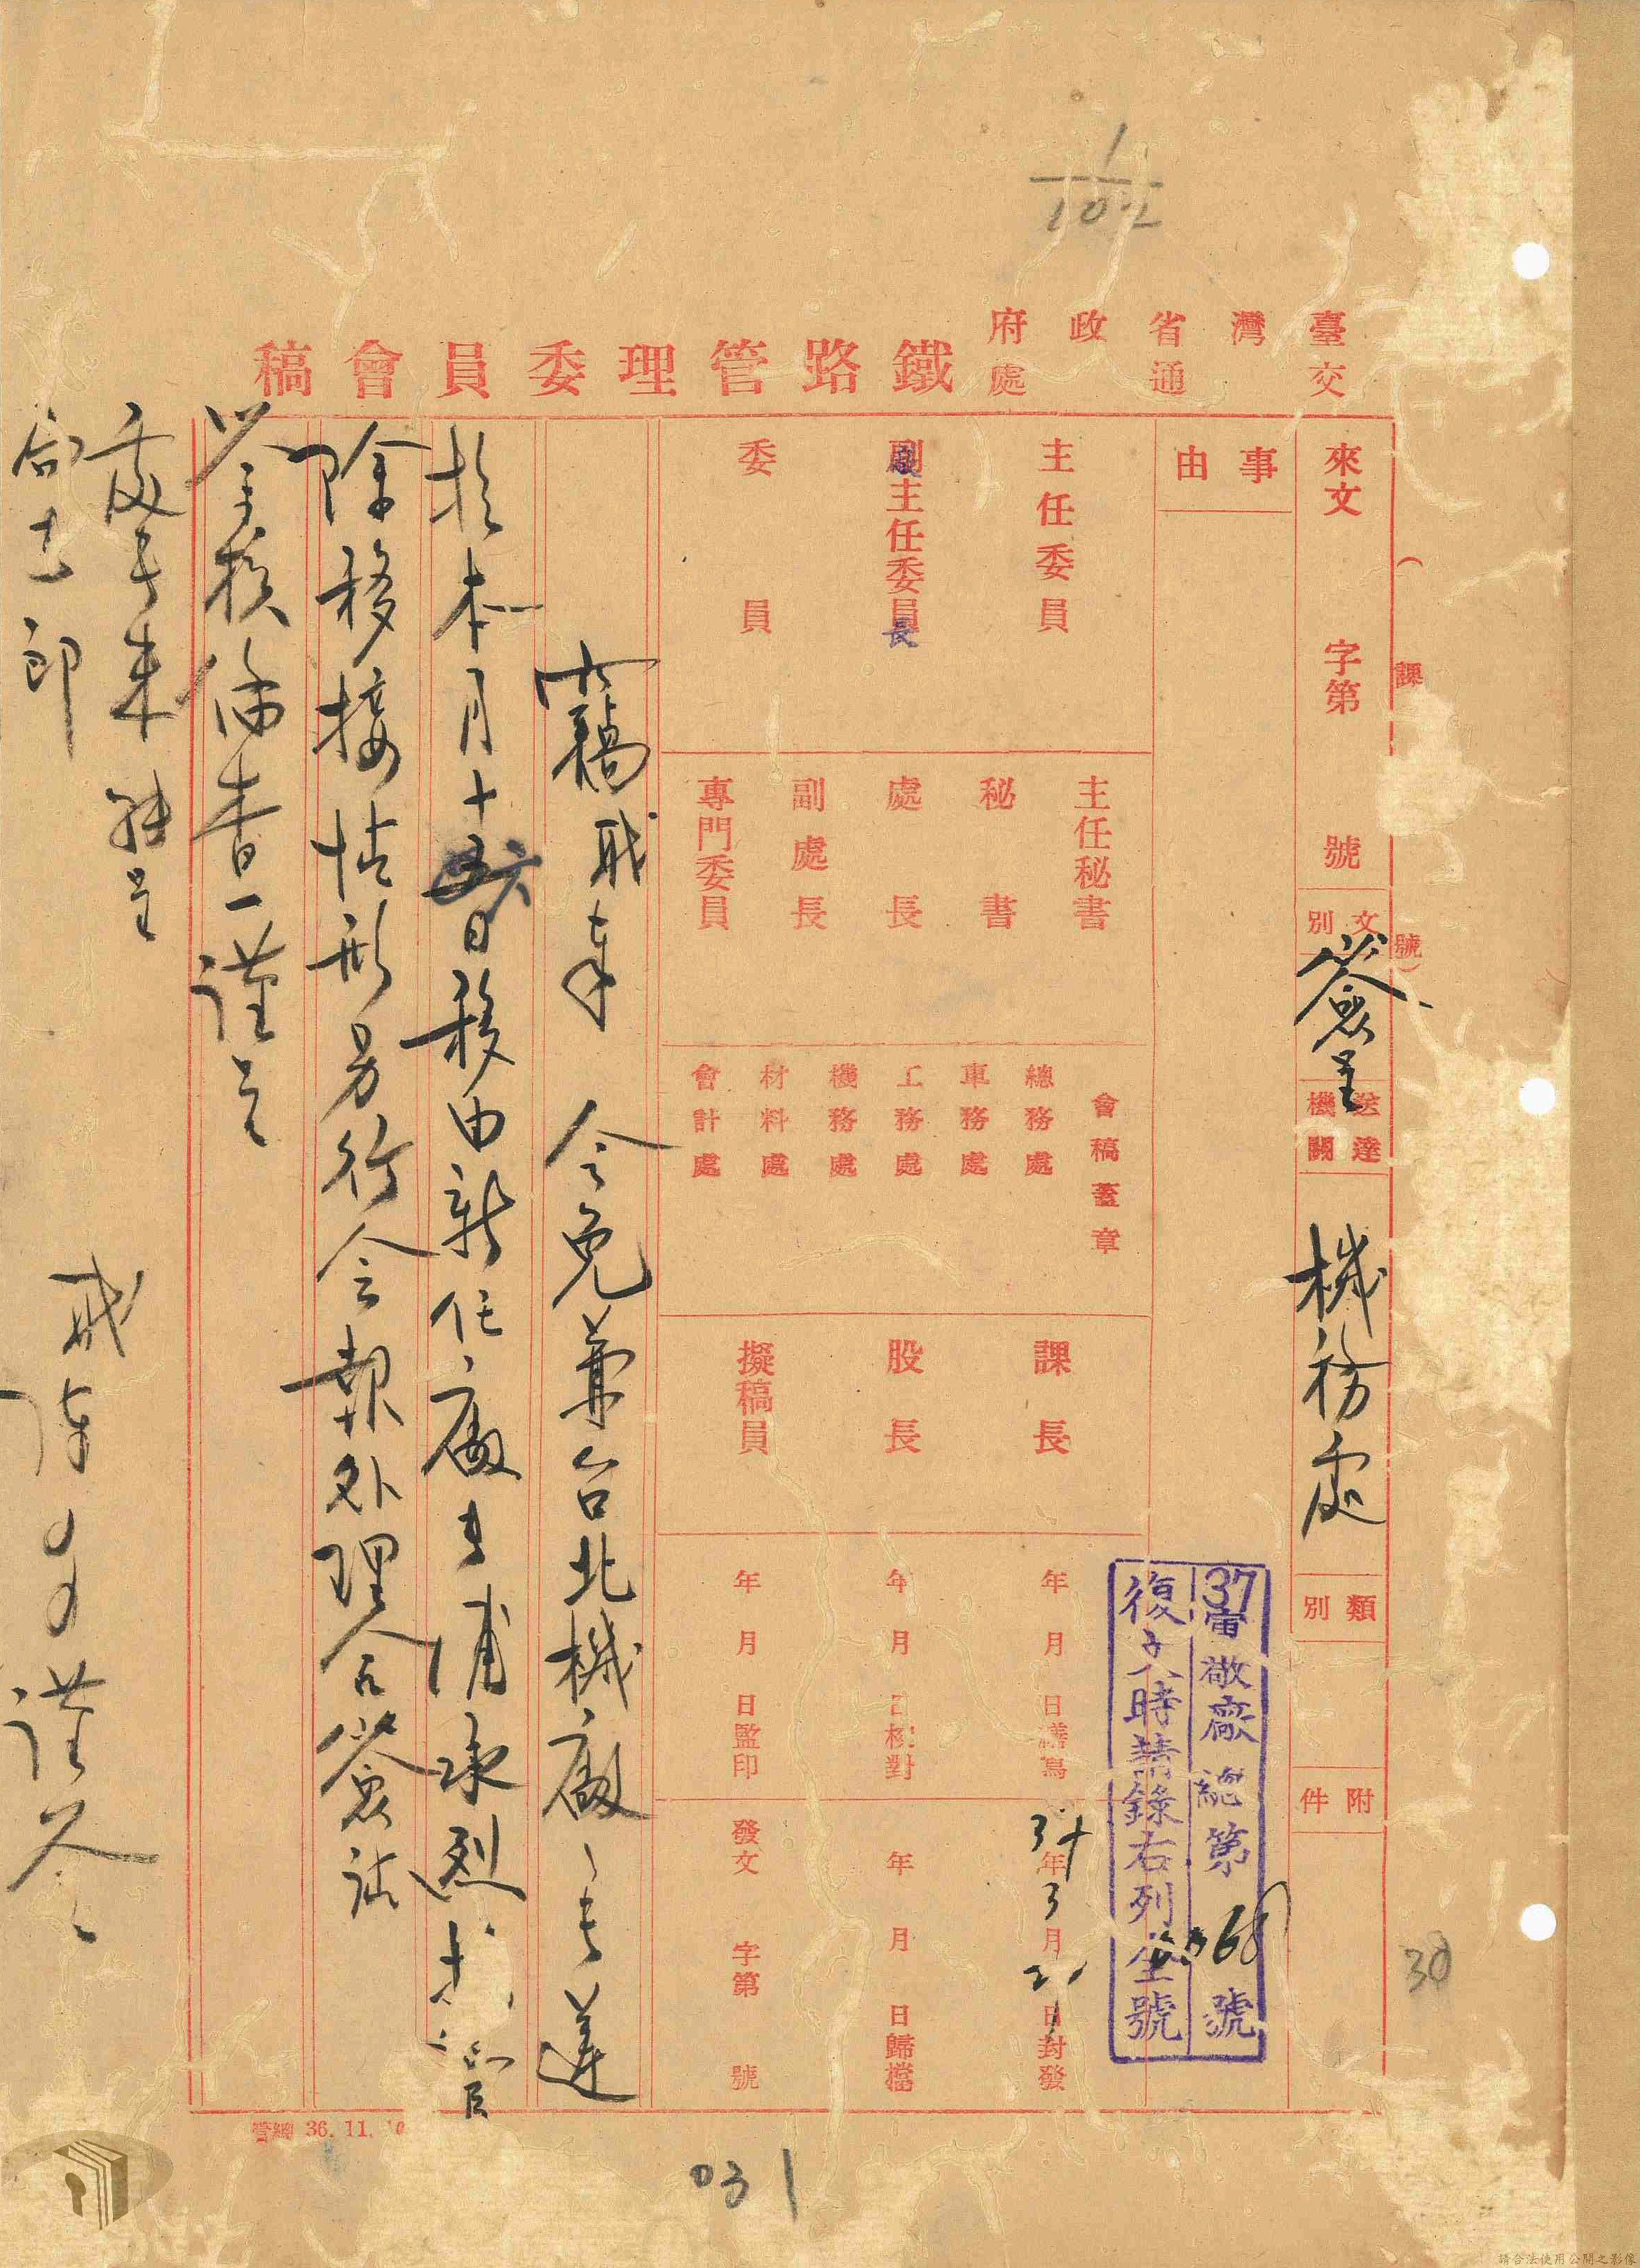 1/102
臺灣省政府
交通處
鐵路管理委員會稿
（課號）
來文 字第 號
文別 簽呈
送達機關 機務處
類別
附件
事由
主任委員
副主任委員
長
委員
主任秘書
秘書
處長
副處長
專門委員
會稿蓋章
總務處
車務處
工務處
機務處
材料處
會計處
課長
股長
擬稿員
年月日繕寫
年月日校對
年月日監印
37年3月 日封發
年月日歸檔
發文 字第 號
37 敬廠總第 號
復文時請錄右列全號
竊職奉 令免兼台北機廠廠長遵
於本月十六日移由新任廠長浦承烈接管
除移接情形另行會報外理合簽請
鑒核備查 謹呈
處長朱 轉呈
局長郎
職陳 謹签
管總 36.11.
031
30
請合法使用公開之影像